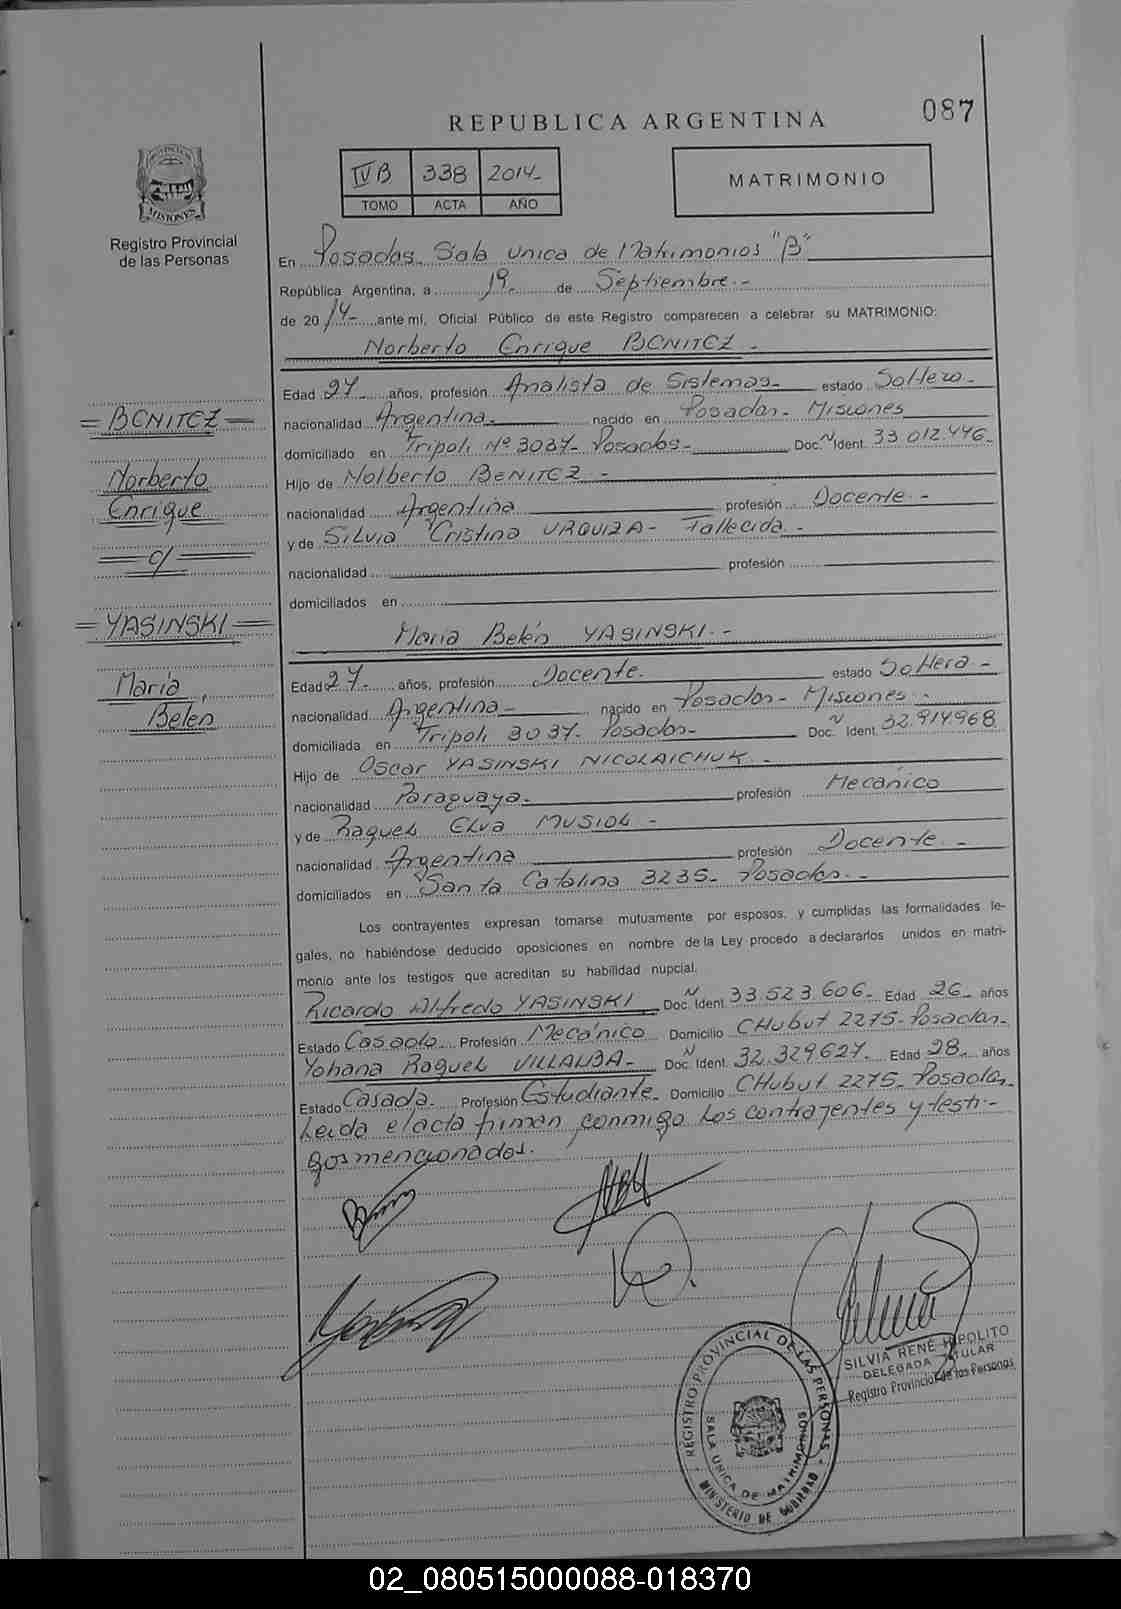 087
REPUBLICA ARGENTINA
IVB 338 2014-
TOMO ACTA AÑO
MATRIMONIO
PROVINCIA DE
MISIONES
Registro Provincial
de las Personas
En Posadas. Sala Unica de Matrimonios "B"
República Argentina, a 19. de Septiembre.-
de 2014- ante mí, Oficial Público de este Registro comparecen a celebrar su MATRIMONIO:
Norberto Enrique BENITEZ -
Edad 27 años, profesión Analista de Sistemas- estado Soltero-
nacionalidad Argentina- nacido en Posadas- Misiones
domiciliado en Tripoli Nº 3037- Posadas- Doc. N Ident. 33.012.446-
Hijo de Nolberto BENITEZ -
nacionalidad Argentina profesión Docente -
y de Silvia Cristina URQUIZA- Fallecida -
nacionalidad profesión
domiciliados en
= BENITEZ =
Norberto
Enrique
= c/ =
= YASINSKI =
María
Belén
María Belén YASINSKI. -
Edad 27- años, profesión Docente. estado Soltera -
nacionalidad Argentina- nacido en Posadas- Misiones -
domiciliada en Tripoli 3037- Posadas- Doc. N Ident. 32.914.968
Hijo de Oscar YASINSKI NICOLAICHUK -
nacionalidad Paraguaya. profesión Mecánico
y de Raquel Elva MUSIOL -
nacionalidad Argentina profesión Docente. -
domiciliados en Santa Catalina 3235- Posadas. -
Los contrayentes expresan tomarse mutuamente por esposos, y cumplidas las formalidades le-
gales, no habiéndose deducido oposiciones en nombre de la Ley procedo a declararlos unidos en matri-
monio ante los testigos que acreditan su habilidad nupcial.
Ricardo Alfredo YASINSKI Doc. N Ident. 33.523.606- Edad 26- años
Estado Casado- Profesión Mecánico Domicilio CHubut 2275- Posadas-
Yohana Raquel VILLALBA- Doc. N Ident. 32.329.627- Edad 28- años
Estado Casada- Profesión Estudiante- Domicilio CHubut 2275- Posadas-
Leida el acta firman conmigo los contrayentes y testi-
gos mencionados.
SILVIA RENÉ HIPOLITO
DELEGADA TITULAR
Registro Provincial de las Personas
REGISTRO PROVINCIAL DE LAS PERSONAS
SALA UNICA DE MATRIMONIOS
MINISTERIO DE GOBIERNO
02_080515000088-018370